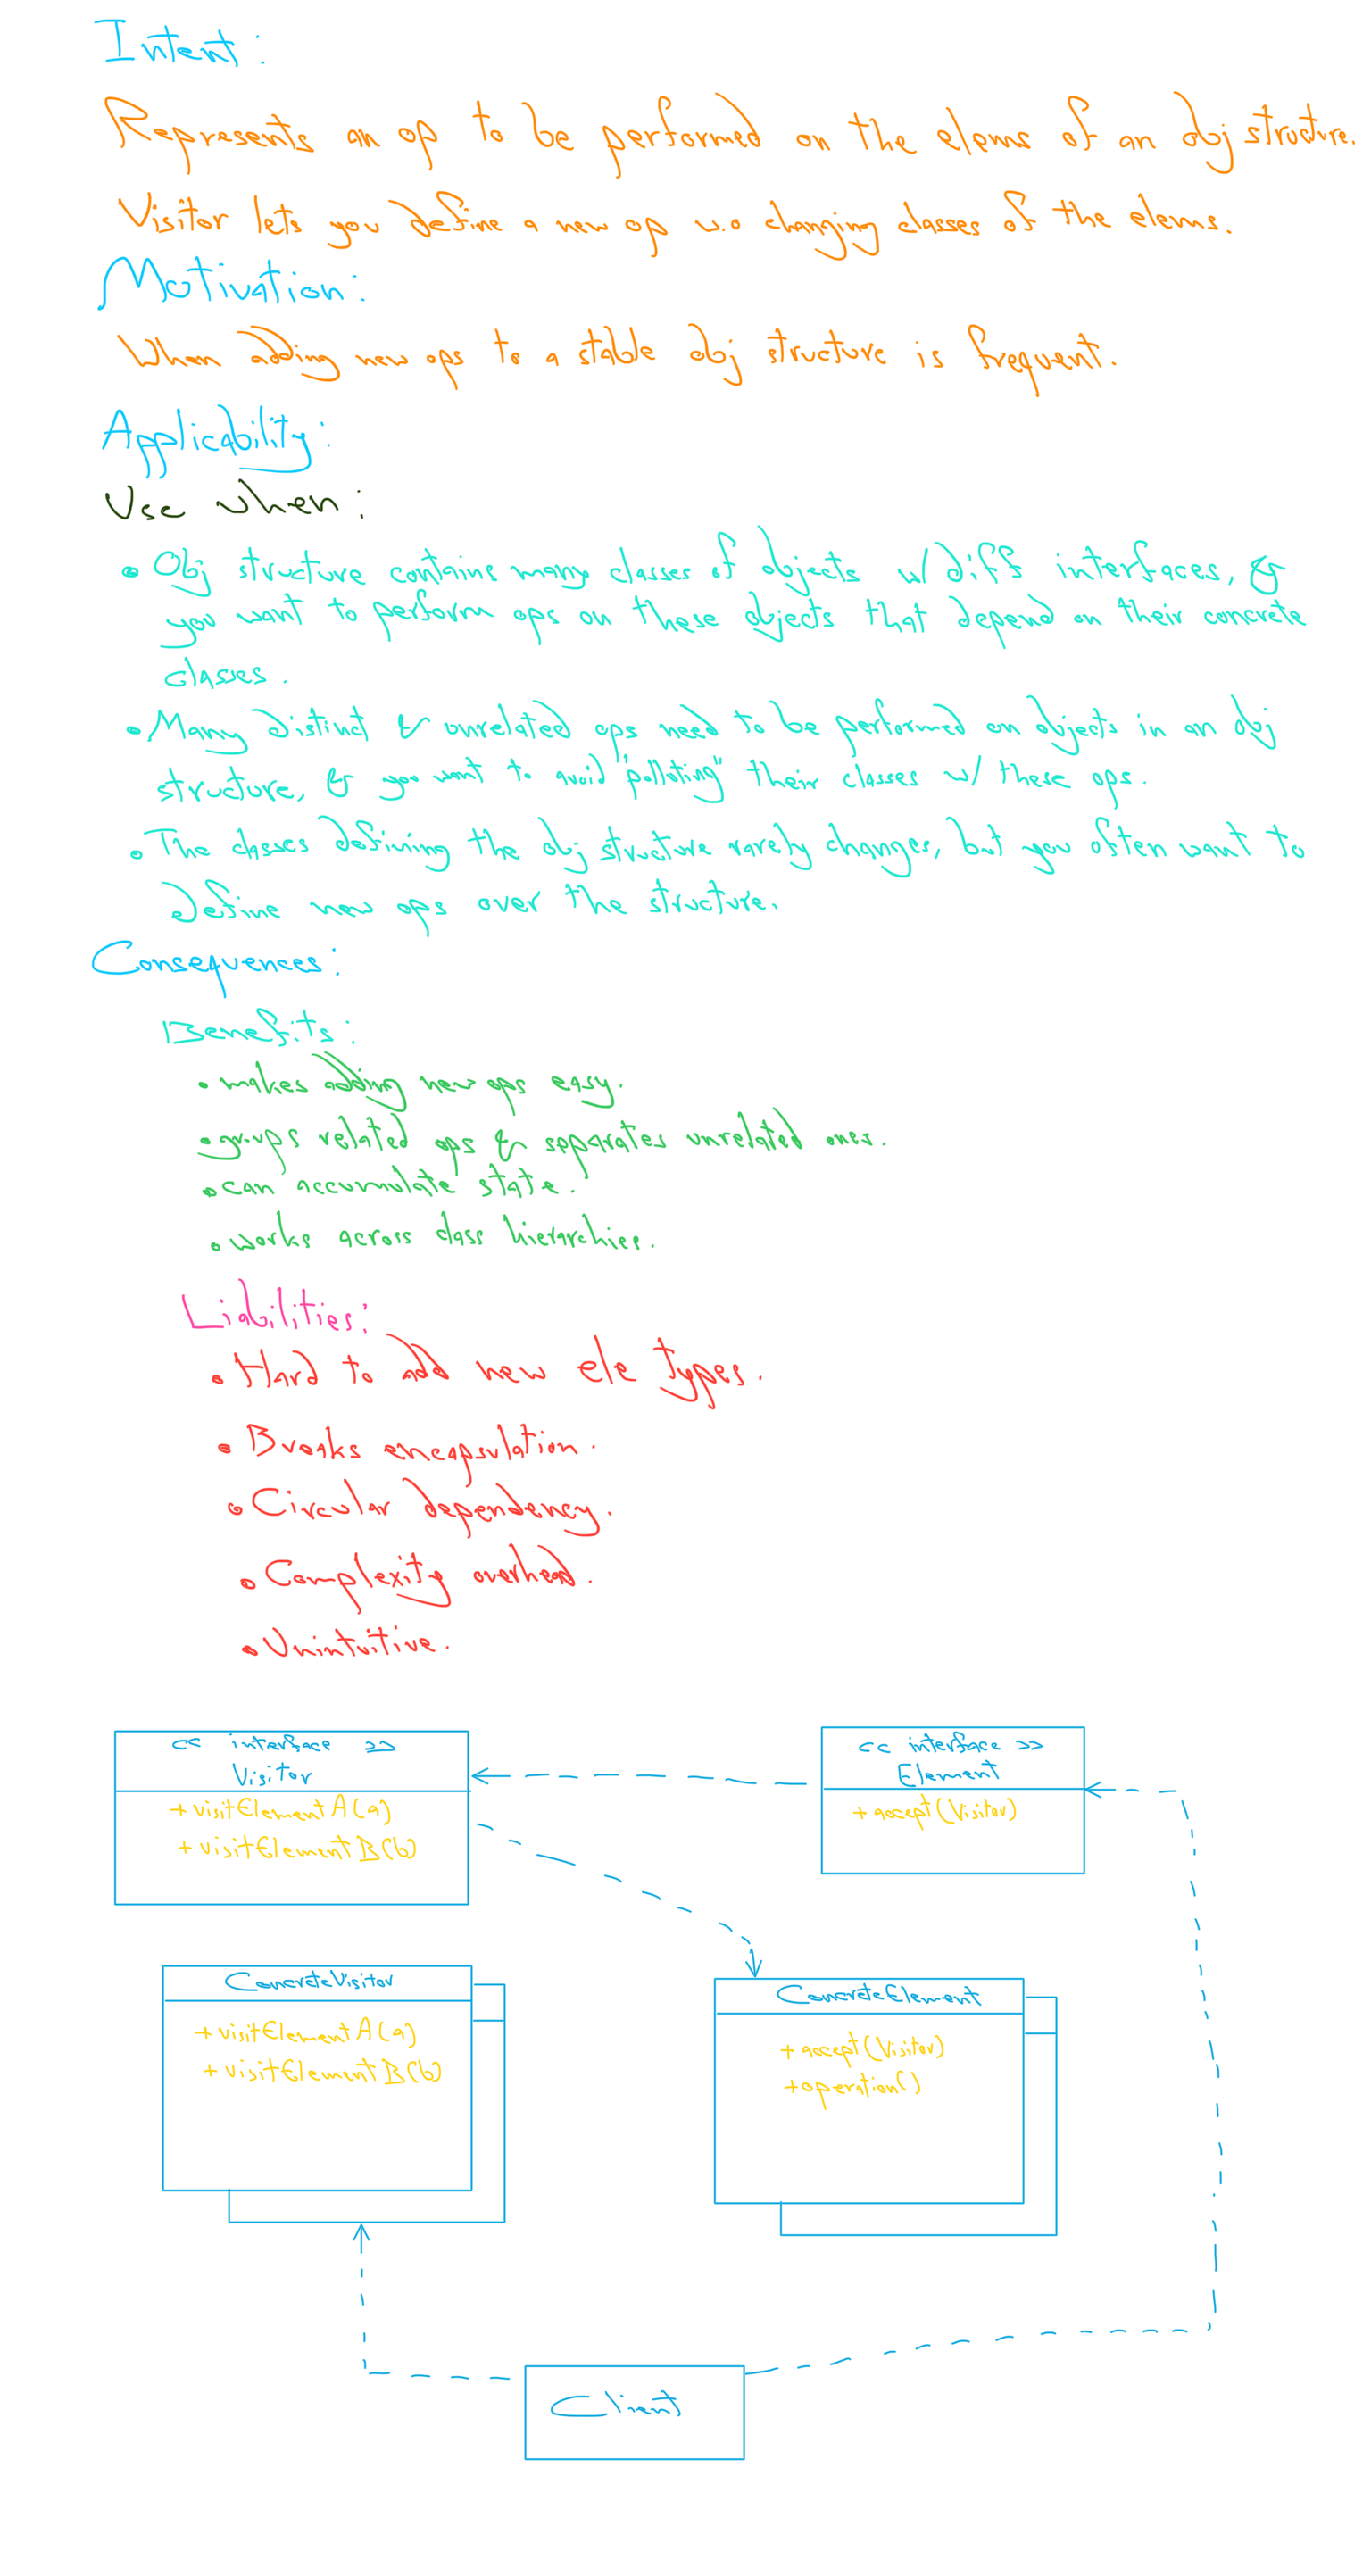 Intent:
Represents an op to be performed on the elems of an obj structure.
Visitor lets you define a new op w.o changing classes of the elems.
Motivation:
When adding new ops to a stable obj structure is frequent.
Applicability:
Use when:
• Obj structure contains many classes of objects w/ diff interfaces, &
you want to perform ops on these objects that depend on their concrete
classes.
• Many distinct & unrelated ops need to be performed on objects in an obj
structure, & you want to avoid "polluting" their classes w/ these ops.
• The classes defining the obj structure rarely changes, but you often want to
define new ops over the structure.
Consequences:
Benefits:
• makes adding new ops easy.
• groups related ops & separates unrelated ones.
• can accumulate state.
• works across class hierarchies.
Liabilities:
• Hard to add new ele types.
• Breaks encapsulation.
• Circular dependency.
• Complexity overhead.
• Unintuitive.
<< interface >>
Visitor
+ visitElementA(a)
+ visitElementB(b)
<< interface >>
Element
+ accept(Visitor)
ConcreteVisitor
+ visitElementA(a)
+ visitElementB(b)
ConcreteElement
+ accept(Visitor)
+ operation()
Client